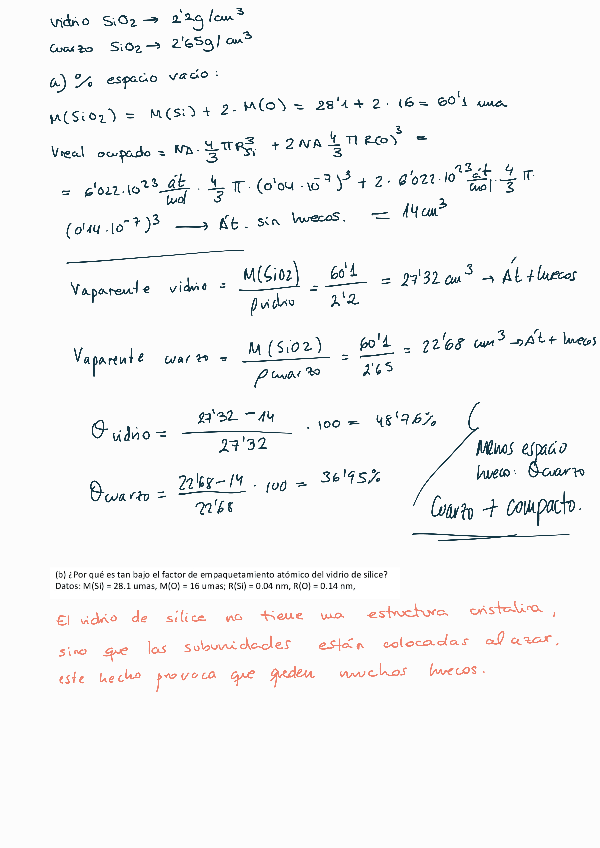 vidrio SiO2 → 2'2g/cm³
cuarzo SiO2 → 2'65g/cm³
a) % espacio vacío:
M(SiO2) = M(Si) + 2·M(O) = 28'1 + 2·16 = 60'1 uma
Vreal ocupado = NA·4/3 π R³Si + 2NA 4/3 π R(O)³ =
= 6'022·10²³ át/mol · 4/3 π·(0'04·10⁻⁷)³ + 2·6'022·10²³ át/mol · 4/3 π·
(0'14·10⁻⁷)³ → Át. sin huecos. = 14cm³
Vaparente vidrio = M(SiO2)/ρvidrio = 60'1/2'2 = 27'32 cm³ → Át + huecos
Vaparente cuarzo = M(SiO2)/ρcuarzo = 60'1/2'65 = 22'68 cm³ → Át + huecos
θvidrio = 27'32-14/27'32 · 100 = 48'76%
θcuarzo = 22'68-14/22'68 · 100 = 36'95%
Menos espacio
hueco: θcuarzo
Cuarzo + compacto.
(b) ¿Por qué es tan bajo el factor de empaquetamiento atómico del vidrio de sílice?
Datos: M(Si) = 28.1 umas, M(O) = 16 umas; R(Si) = 0.04 nm, R(O) = 0.14 nm,
El vidrio de sílice no tiene una estructura cristalina,
sino que las subunidades están colocadas al azar,
este hecho provoca que queden muchos huecos.